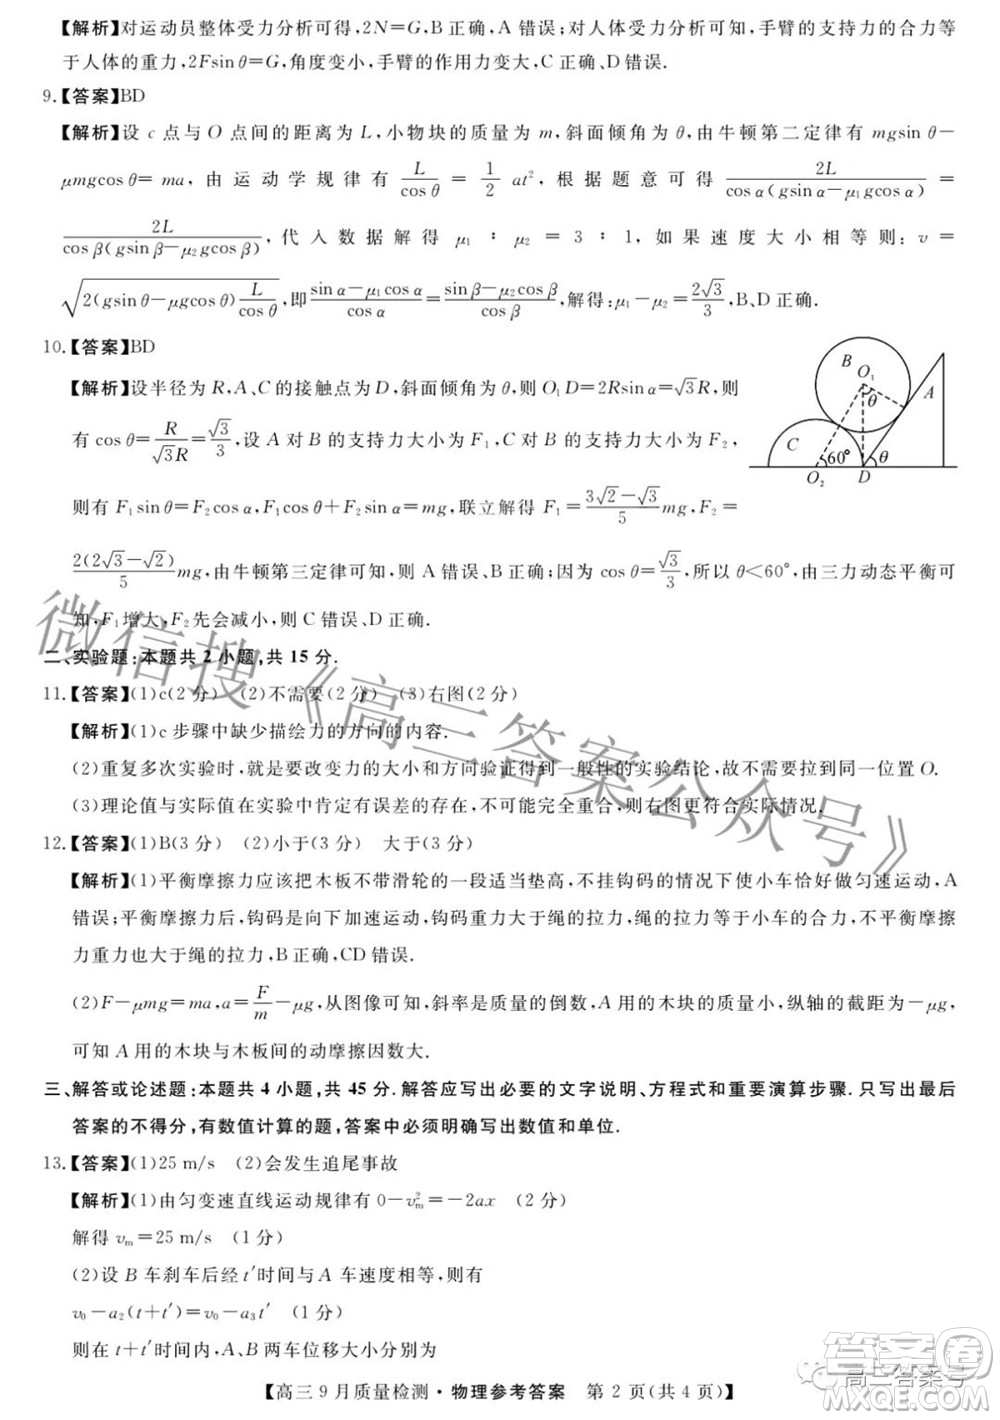 【解析】对运动员整体受力分析可得,2N=G,N=G/2,A 错误;对人体的重力分解可知,B 正确;手臂的支持力的合力等
于人体的重力,2Fsin θ=G,角度变小,手臂的作用力变大,C 正确、D 错误.
9.【答案】BD
【解析】设 c 点与 O 点间的距离为 L,小物块的质量为 m,斜面倾角为 θ,由牛顿第二定律有 mgsin θ−
μmgcos θ=ma,由运动学规律有 L/cos θ = 1/2 at²,根据题意可得 2L/cos α(gsin α−μ₁gcos α) =
2L/cos β(gsin β−μ₂gcos β),代入数据解得 μ₁ : μ₂ = 3 : 1,如果速度大小相等则: v =
√(2(gsin θ−μgcos θ) L/cos θ),即 (sin α−μ₁cos α)/cos α = (sin β−μ₂cos β)/cos β,解得:μ₁−μ₂=2√3/3,B、D 正确.
10.【答案】BD
【解析】设半径为 R,A、C 的接触点为 D,斜面倾角为 θ,则 O₁D=2Rsin α=√3R,则
有 cos θ=R/√3R=√3/3,设 A 对 B 的支持力大小为 F₁,C 对 B 的支持力大小为 F₂,
则有 F₁sin θ=F₂cos α,F₁cos θ+F₂sin α=mg,联立解得 F₁=(3√2−√3)/5 mg,F₂=
2(2√3−√2)/5 mg,由牛顿第三定律可知,则 A 错误、B 正确;因为 cos θ=√3/3,所以 θ<60°,由三力动态平衡可
知,F₁ 增大,F₂ 先会减小,则 C 错误、D 正确.
B
O₁
θ
A
C
60°
θ
O₂
D
二、实验题:本题共 2 小题,共 15 分.
11.【答案】(1)c(2 分) (2)不需要(2 分) (3)右图(2 分)
【解析】(1)c 步骤中缺少描绘力的方向的内容.
(2)重复多次实验时,就是要改变力的大小和方向验证得到一般性的实验结论,故不需要拉到同一位置 O.
(3)理论值与实际值在实验中肯定有误差的存在,不可能完全重合,则右图更符合实际情况.
12.【答案】(1)B(3 分) (2)小于(3 分) 大于(3 分)
【解析】(1)平衡摩擦力应该把木板不带滑轮的一段适当垫高,不挂钩码的情况下使小车恰好做匀速运动,A
错误;平衡摩擦力后,钩码是向下加速运动,钩码重力大于绳的拉力,绳的拉力等于小车的合力,不平衡摩擦
力重力也大于绳的拉力,B 正确,CD 错误.
(2)F−μmg=ma,a=F/m−μg,从图像可知,斜率是质量的倒数,A 用的木块的质量小,纵轴的截距为−μg,
可知 A 用的木块与木板间的动摩擦因数大.
三、解答或论述题:本题共 4 小题,共 45 分.解答应写出必要的文字说明、方程式和重要演算步骤.只写出最后
答案的不得分,有数值计算的题,答案中必须明确写出数值和单位.
13.【答案】(1)25 m/s (2)会发生追尾事故
【解析】(1)由匀变速直线运动规律有 0−vₘ²=−2ax (2 分)
解得 vₘ=25 m/s (1 分)
(2)设 B 车刹车后经 t′时间与 A 车速度相等,则有
v₀−a₂(t+t′)=v₀−a₃t′ (1 分)
则在 t+t′时间内,A、B 两车位移大小分别为
【高三 9 月质量检测·物理参考答案 第 2 页(共 4 页)】
微信搜《高三答案公众号》
答案卷
高三答案号